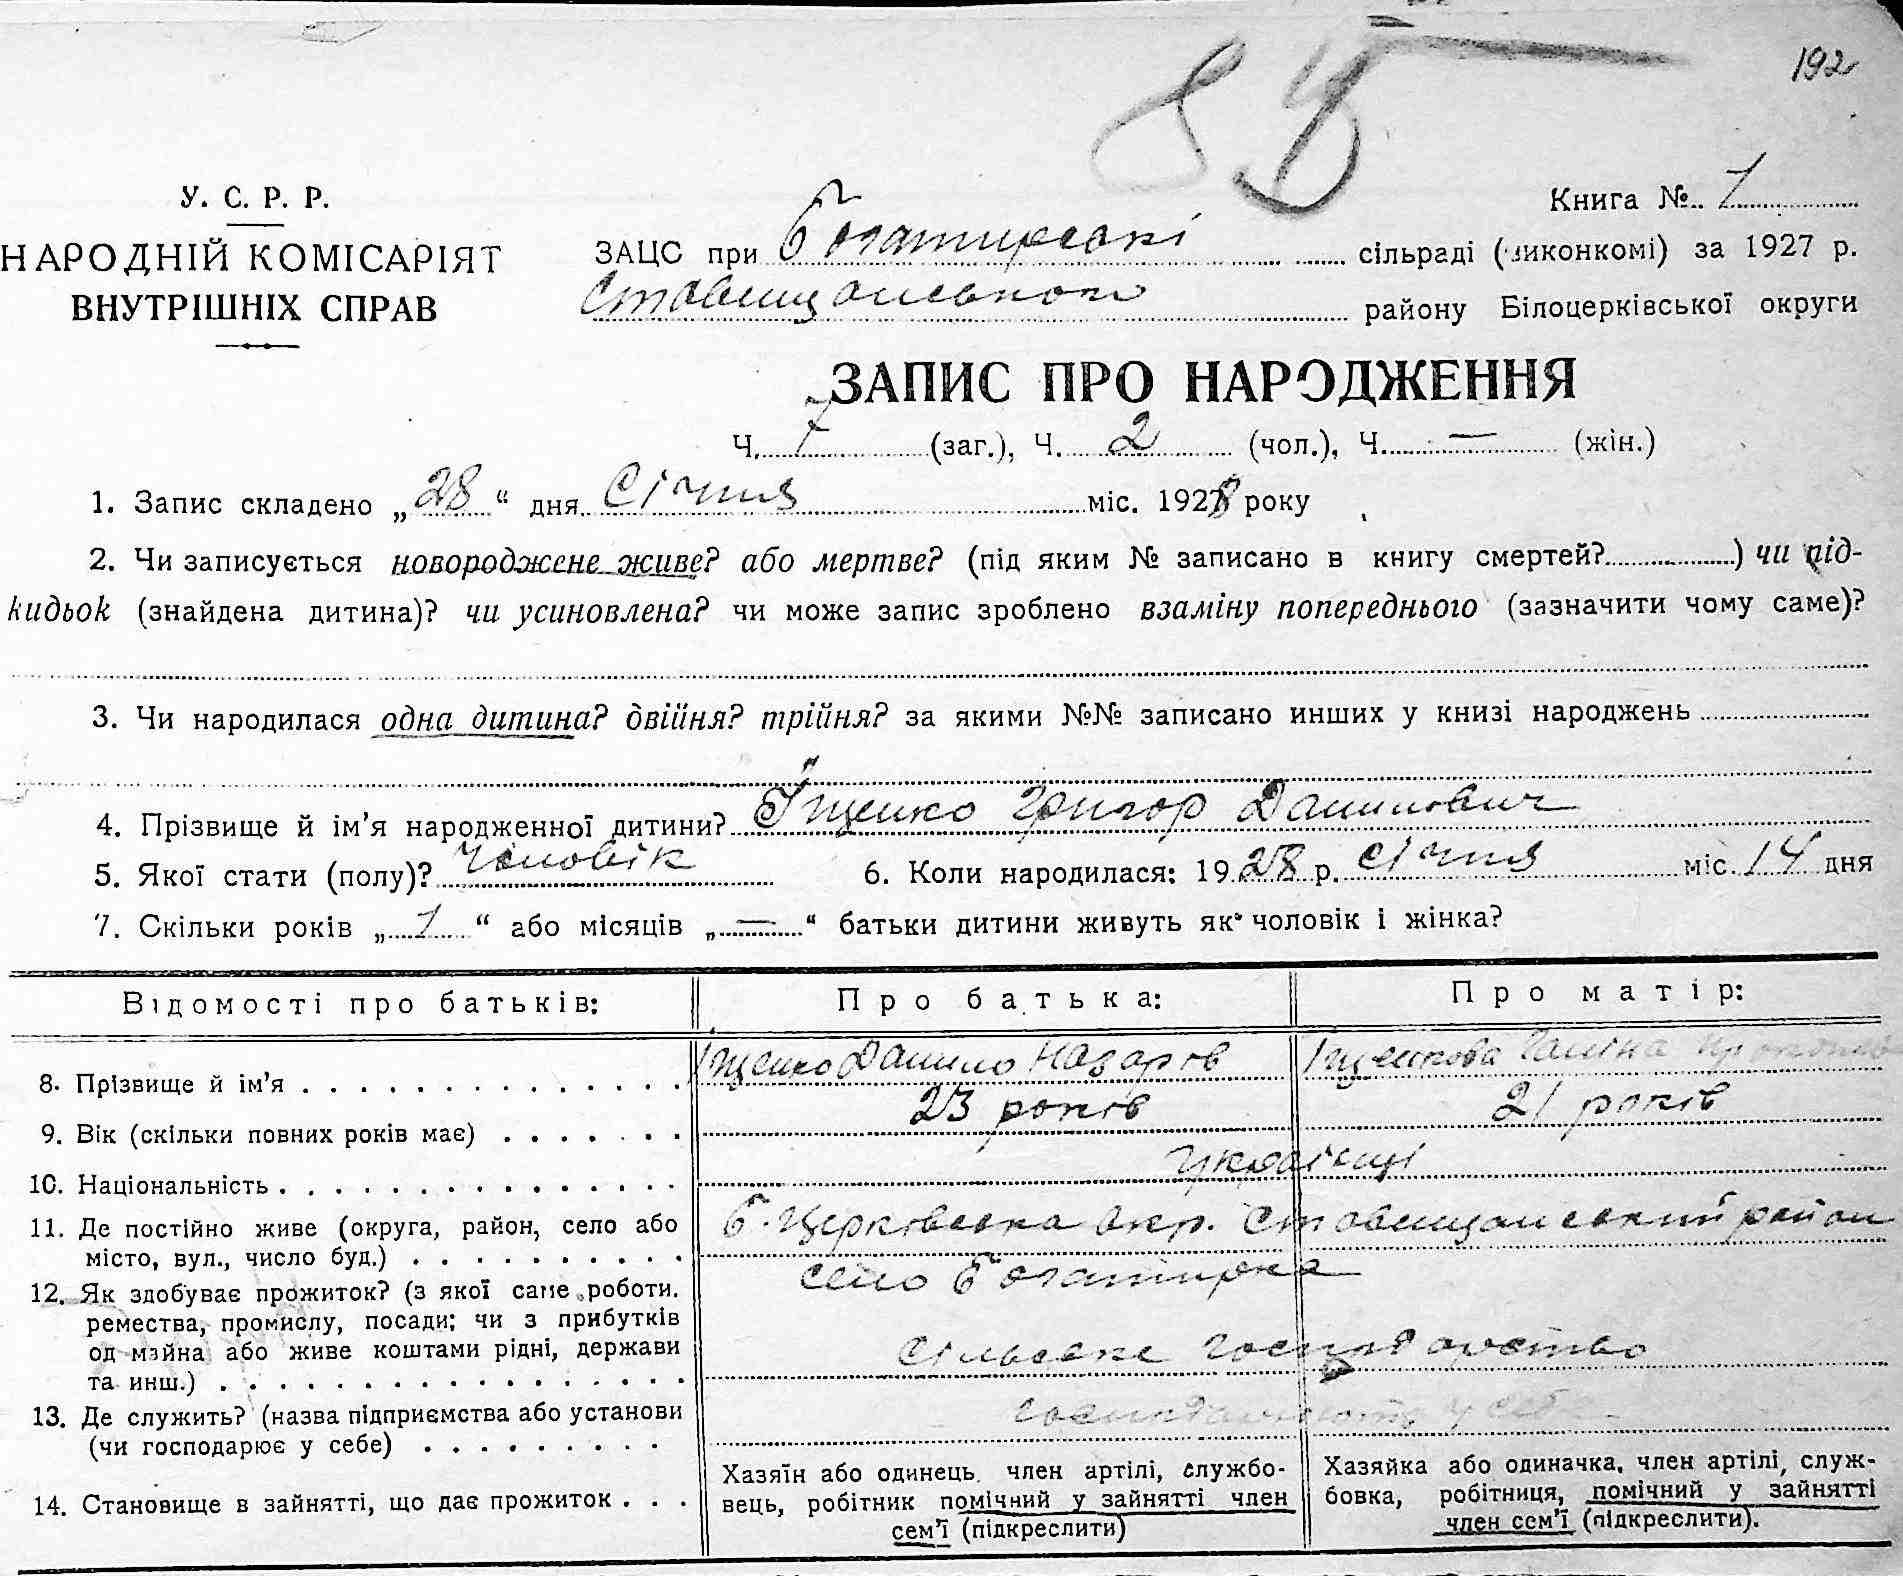 192
У. С. Р. Р.
НАРОДНІЙ КОМІСАРІЯТ
ВНУТРІШНІХ СПРАВ
Книга № 1
ЗАЦС при Богатирські сільраді (виконкомі) за 1927 р.
Ставищанського району Білоцерківської округи
ЗАПИС ПРО НАРОДЖЕННЯ
Ч. 7 (заг.), Ч. 2 (чол.), Ч. — (жін.)
1. Запис складено „28“ дня Січня міс. 1928 року
2. Чи записується новороджене живе? або мертве? (під яким № записано в книгу смертей?) чи під-
кидьок (знайдена дитина)? чи усиновлена? чи може запис зроблено взаміну попереднього (зазначити чому саме)?
3. Чи народилася одна дитина? двійня? трійня? за якими №№ записано инших у книзі народжень
4. Прізвище й ім’я народженної дитини? Іщенко Григор Данилович
5. Якої стати (полу)? Чоловік 6. Коли народилася: 1928 р. січня міс. 14 дня
7. Скільки років „1“ або місяців „—“ батьки дитини живуть як чоловік і жінка?
Відомості про батьків: Про батька: Про матір:
8. Прізвище й ім’я Іщенко Данило Назарів Іщенкова Галіна
9. Вік (скільки повних років має) 23 років 21 років
10. Національність Українці
11. Де постійно живе (округа, район, село або Б. Церківська окр. Ставищанський район
місто, вул., число буд.) село Богатирка
12. Як здобуває прожиток? (з якої саме роботи.
ремества, промислу, посади; чи з прибутків
од майна або живе коштами рідні, держави сільське господарство
та инш.)
13. Де служить? (назва підприємства або установи господарюють у себе
(чи господарює у себе)
14. Становище в зайнятті, що дає прожиток
Хазяїн або одинець. член артілі, службо-
вець, робітник помічний у зайнятті член
сем’ї (підкреслити)
Хазяйка або одиначка, член артілі, служ-
бовка, робітниця, помічний у зайнятті
член сем’ї (підкреслити).